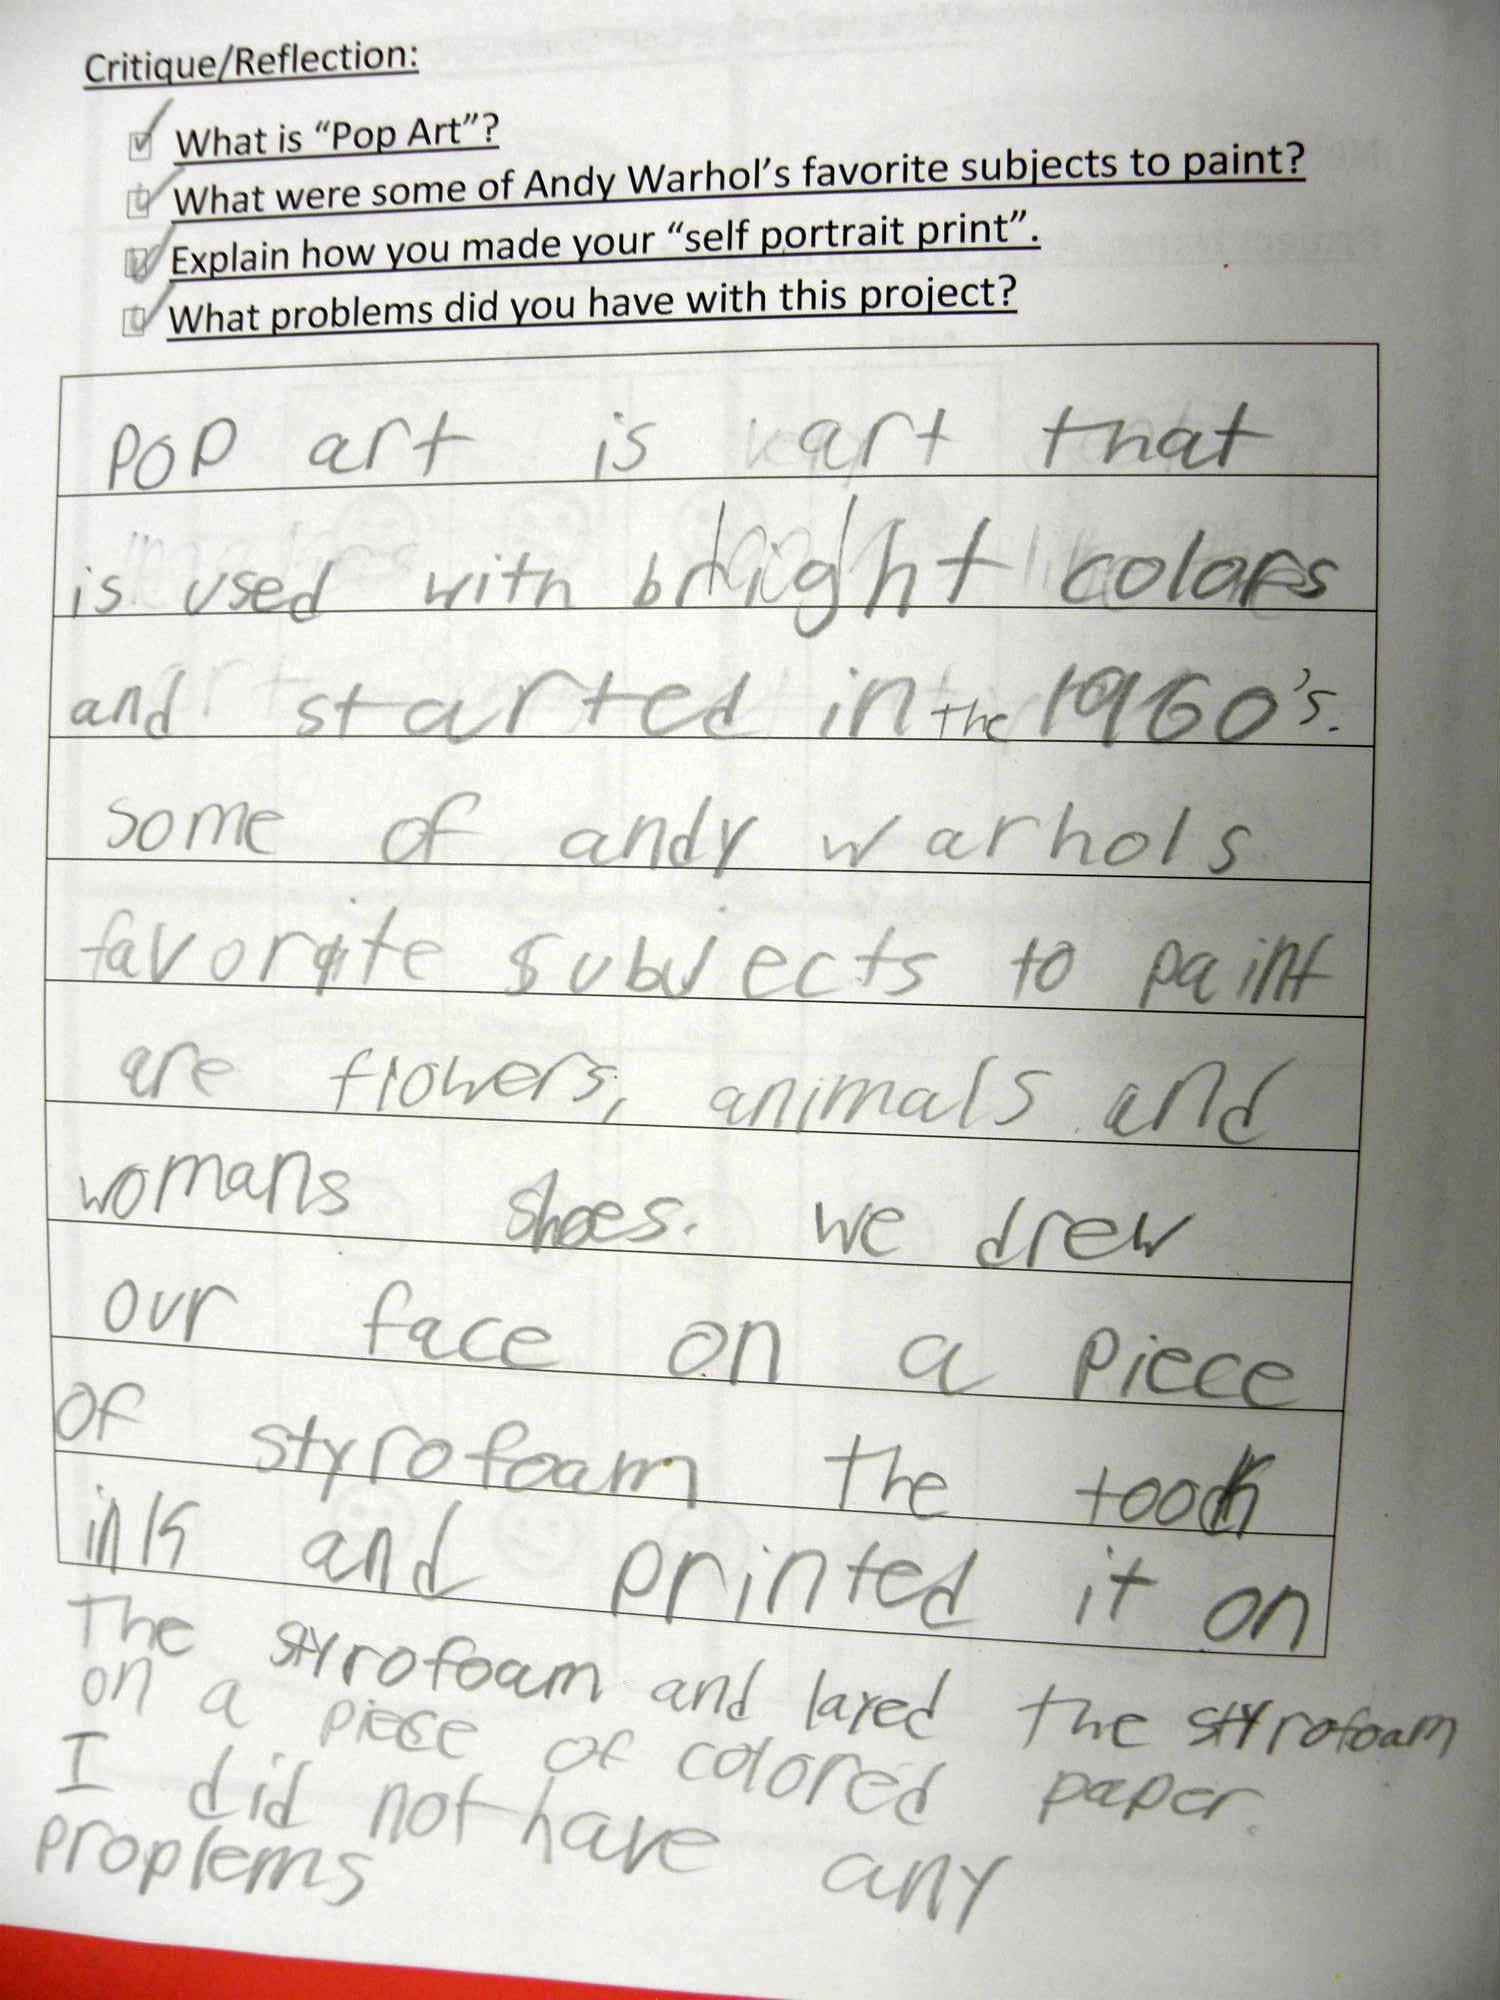 Critique/Reflection:
What is “Pop Art”?
What were some of Andy Warhol’s favorite subjects to paint?
Explain how you made your “self portrait print”.
What problems did you have with this project?
POP art is art that
is used with bright colors
and started in the 1960's.
some of andy warhols
favorite subjects to paint
are flowers, animals and
womans shoes. we drew
our face on a piece
of styrofoam the took
ink and printed it on
The styrofoam and layed the styrofoam
on a piece of colored paper.
I did not have any
proplems